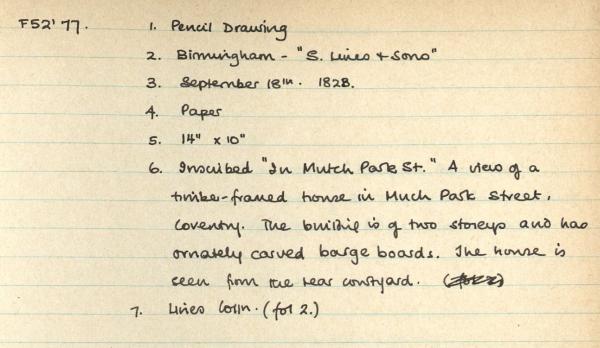 F52'77. 1. Pencil Drawing
2. Birmingham - "S. Lines & Sons"
3. September 18th. 1828.
4. Paper
5. 14" x 10"
6. Inscribed "In Mutch Park St." A view of a
timber-framed house in Much Park Street,
Coventry. The building is of two storeys and has
ornately carved barge boards. The house is
seen from the rear courtyard.
7. Lines Colln. (fol 2.)